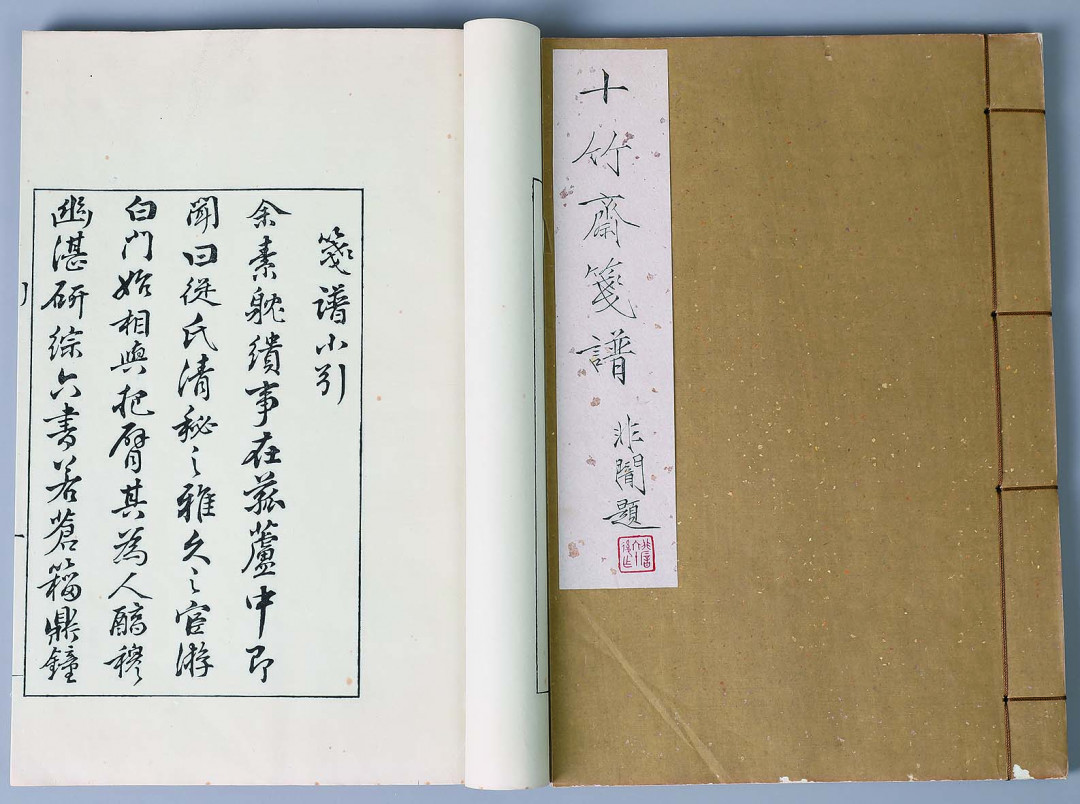 十竹齋箋譜
非闇題
箋譜小引
余素躭繢事在菰蘆中即
聞曰從氏清秘之雅久之宦游
白門始相與把臂其為人醕穆
幽湛研綜六書若蒼籀鼎鐘